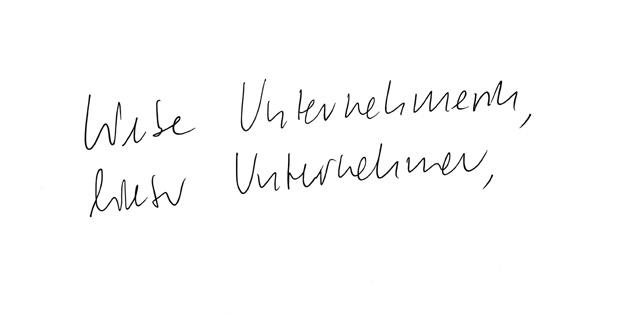 Liebe Unternehmerin,
lieber Unternehmer,